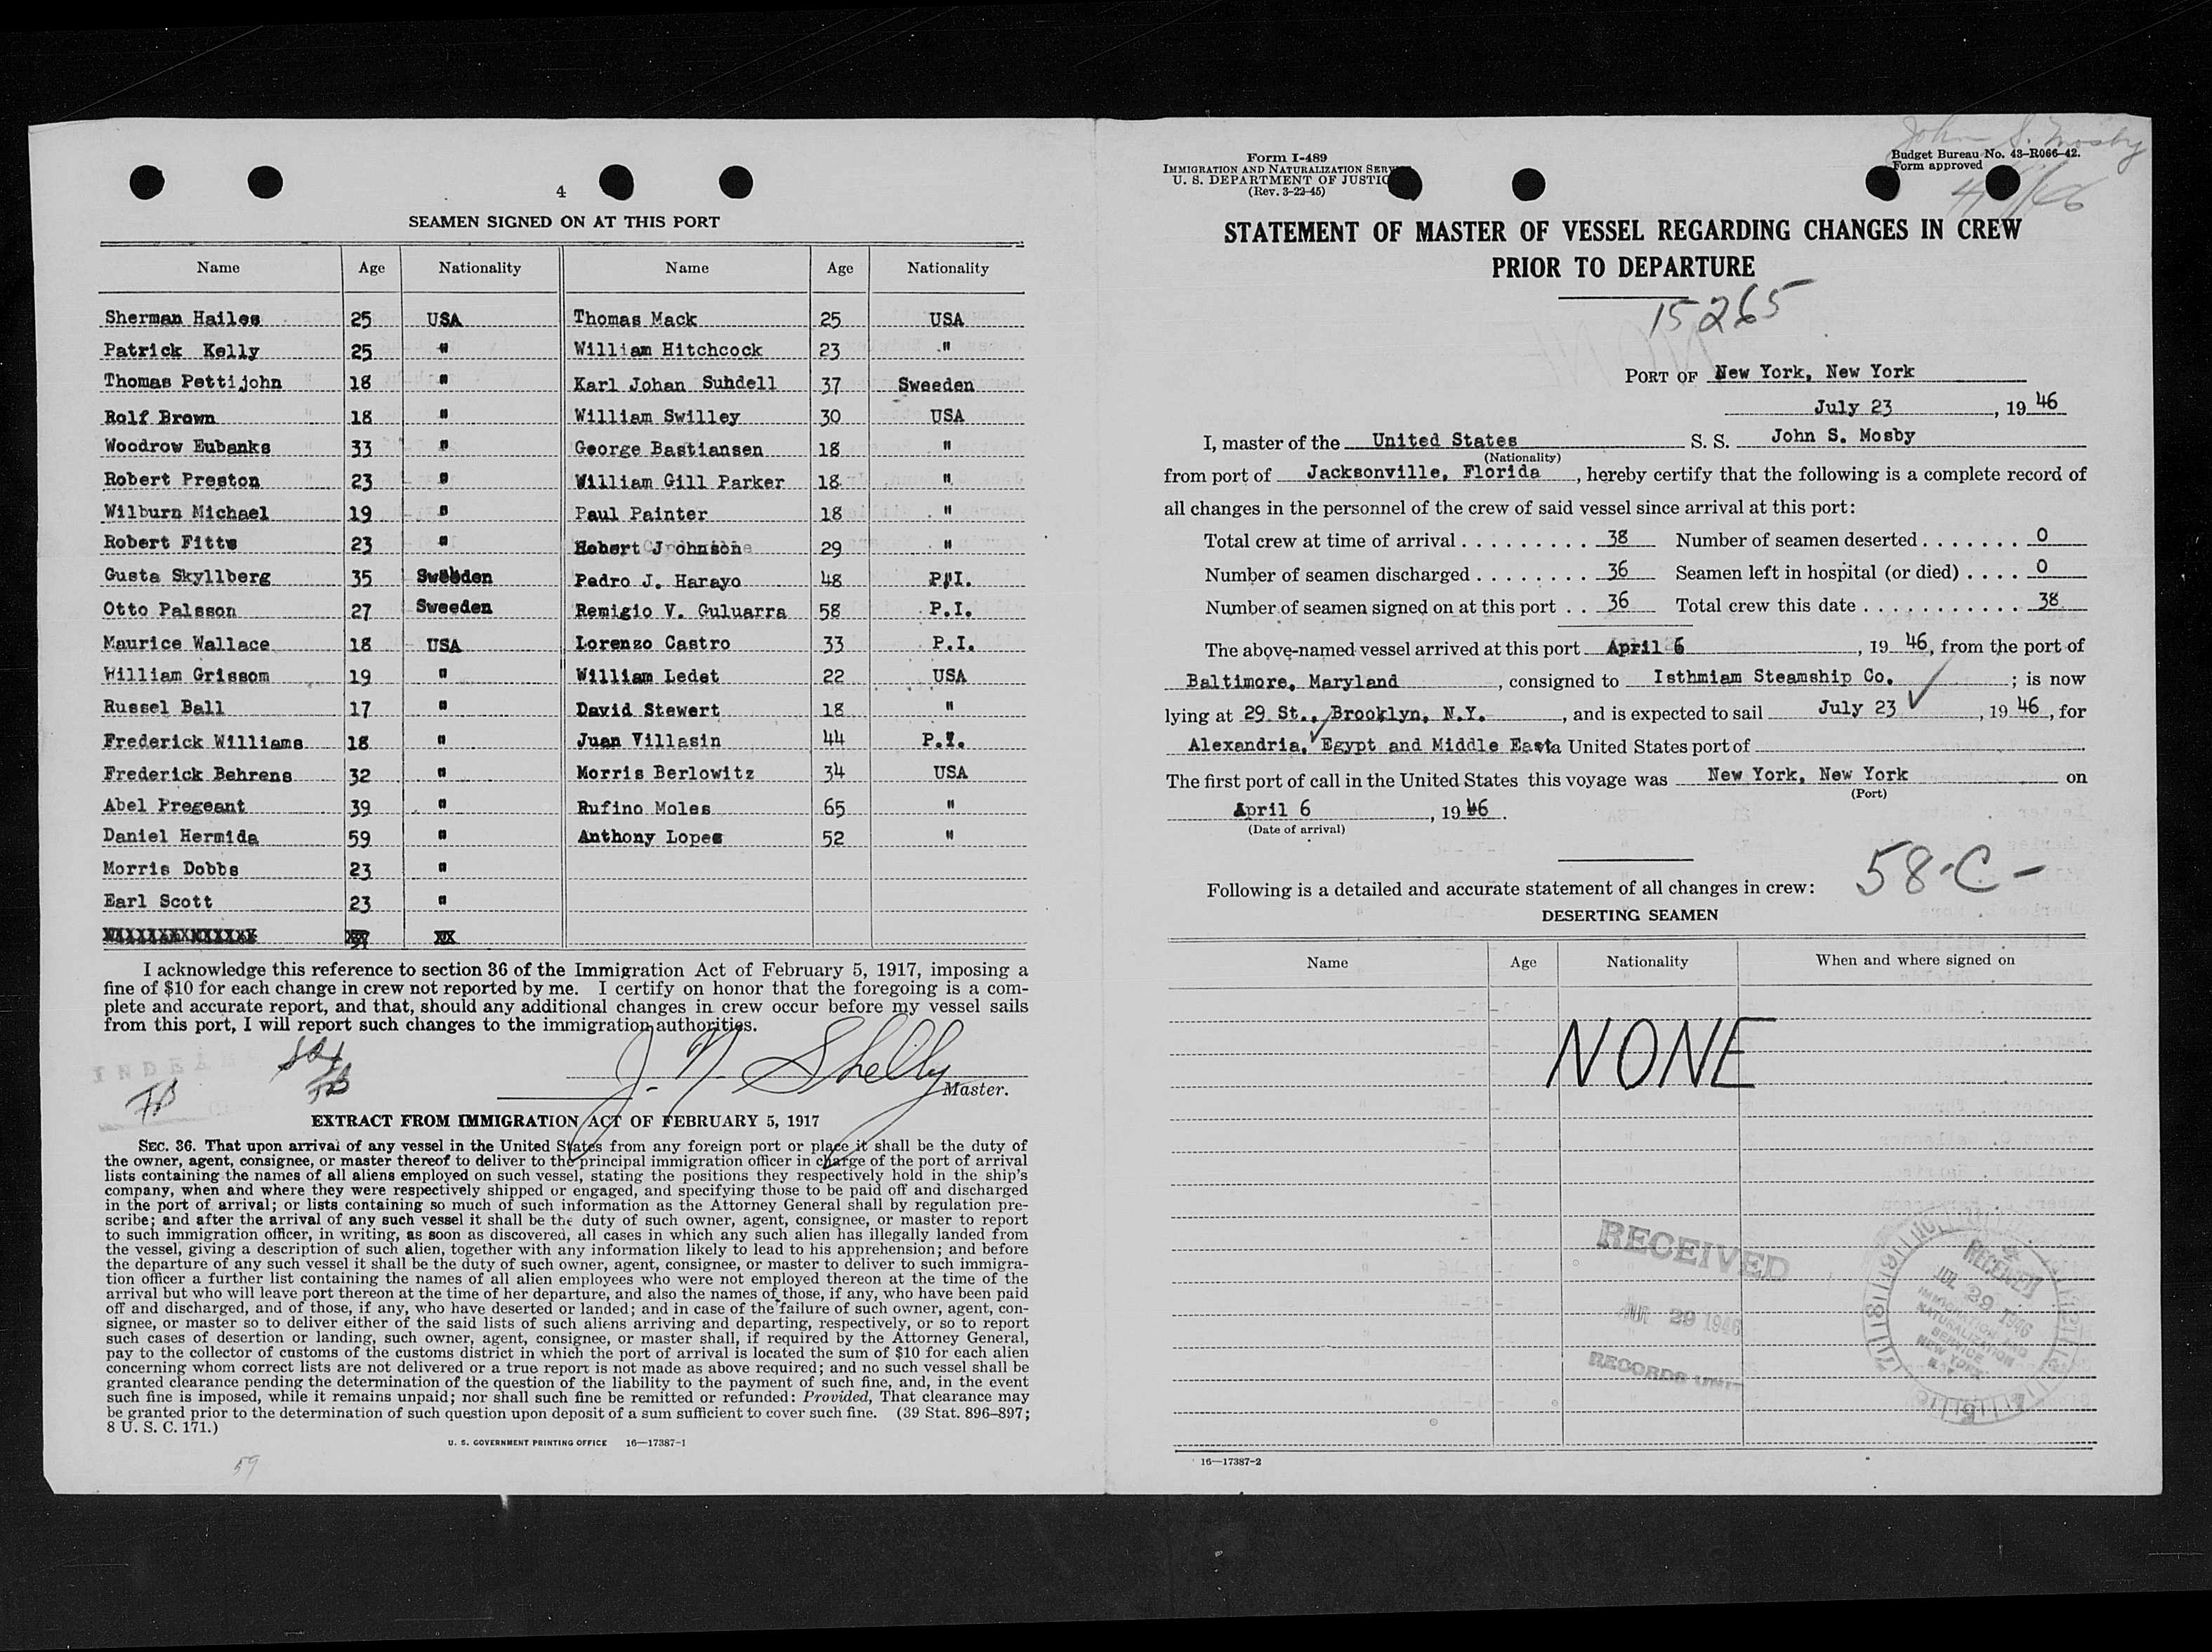 4
SEAMEN SIGNED ON AT THIS PORT
Name Age Nationality Name Age Nationality
Sherman Hailes 25 USA Thomas Mack 25 USA
Patrick Kelly 25 " William Hitchcock 23 "
Thomas Pettijohn 18 " Karl Johan Suhdell 37 Sweeden
Rolf Brown 18 " William Swilley 30 USA
Woodrow Eubanks 33 " George Bastiansen 18 "
Robert Preston 23 " William Gill Parker 18 "
Wilburn Michael 19 " Paul Painter 18 "
Robert Fitts 23 " Robert Johnson 29 "
Gusta Skyllberg 35 Sweeden Pedro J. Harayo 48 P.I.
Otto Palsson 27 Sweeden Remigio V. Guluarra 58 P.I.
Maurice Wallace 18 USA Lorenzo Castro 33 P.I.
William Grissom 19 " William Ledet 22 USA
Russel Ball 17 " David Stewert 18 "
Frederick Williams 18 " Juan Villasin 44 P.I.
Frederick Behrens 32 " Morris Berlowitz 34 USA
Abel Pregeant 39 " Rufino Moles 65 "
Daniel Hermida 59 " Anthony Lopes 52 "
Morris Dobbs 23 "
Earl Scott 23 "
I acknowledge this reference to section 36 of the Immigration Act of February 5, 1917, imposing a
fine of $10 for each change in crew not reported by me. I certify on honor that the foregoing is a com-
plete and accurate report, and that, should any additional changes in crew occur before my vessel sails
from this port, I will report such changes to the immigration authorities.
J. N. Shelly
Master.
EXTRACT FROM IMMIGRATION ACT OF FEBRUARY 5, 1917
SEC. 36. That upon arrival of any vessel in the United States from any foreign port or place it shall be the duty of
the owner, agent, consignee, or master thereof to deliver to the principal immigration officer in charge of the port of arrival
lists containing the names of all aliens employed on such vessel, stating the positions they respectively hold in the ship's
company, when and where they were respectively shipped or engaged, and specifying those to be paid off and discharged
in the port of arrival; or lists containing so much of such information as the Attorney General shall by regulation pre-
scribe; and after the arrival of any such vessel it shall be the duty of such owner, agent, consignee, or master to report
to such immigration officer, in writing, as soon as discovered, all cases in which any such alien has illegally landed from
the vessel, giving a description of such alien, together with any information likely to lead to his apprehension; and before
the departure of any such vessel it shall be the duty of such owner, agent, consignee, or master to deliver to such immigra-
tion officer a further list containing the names of all alien employees who were not employed thereon at the time of the
arrival but who will leave port thereon at the time of her departure, and also the names of those, if any, who have been paid
off and discharged, and of those, if any, who have deserted or landed; and in case of the failure of such owner, agent, con-
signee, or master so to deliver either of the said lists of such aliens arriving and departing, respectively, or so to report
such cases of desertion or landing, such owner, agent, consignee, or master shall, if required by the Attorney General,
pay to the collector of customs of the customs district in which the port of arrival is located the sum of $10 for each alien
concerning whom correct lists are not delivered or a true report is not made as above required; and no such vessel shall be
granted clearance pending the determination of the question of the liability to the payment of such fine, and, in the event
such fine is imposed, while it remains unpaid; nor shall such fine be remitted or refunded: Provided, That clearance may
be granted prior to the determination of such question upon deposit of a sum sufficient to cover such fine. (39 Stat. 896–897;
8 U. S. C. 171.)
U. S. GOVERNMENT PRINTING OFFICE 16—17387-1
59
John S. Mosby
Form I-489
IMMIGRATION AND NATURALIZATION
U. S. DEPARTMENT OF JUSTIC
(Rev. 3-22-45)
Budget Bureau No. 43-R066-42.
Form approved
STATEMENT OF MASTER OF VESSEL REGARDING CHANGES IN CREW
PRIOR TO DEPARTURE
15265
PORT OF New York, New York
July 23, 1946
I, master of the United States S. S. John S. Mosby
(Nationality)
from port of Jacksonville, Florida, hereby certify that the following is a complete record of
all changes in the personnel of the crew of said vessel since arrival at this port:
Total crew at time of arrival 38 Number of seamen deserted 0
Number of seamen discharged 36 Seamen left in hospital (or died) 0
Number of seamen signed on at this port 36 Total crew this date 38
The above-named vessel arrived at this port April 6, 19 46, from the port of
Baltimore, Maryland, consigned to Isthmiam Steamship Co.; is now
lying at 29 St., Brooklyn, N.Y., and is expected to sail July 23, 19 46, for
Alexandria, Egypt and Middle East a United States port of
The first port of call in the United States this voyage was New York, New York on
(Port)
April 6, 19 46.
(Date of arrival)
58-C-
Following is a detailed and accurate statement of all changes in crew:
DESERTING SEAMEN
Name Age Nationality When and where signed on
NONE
RECEIVED
JUL 29 1946
RECORDS UNIT
RECEIVED
JUL 29 1946
IMMIGRATION AND
NATURALIZATION
SERVICE
NEW YORK
N.Y.
16—17387-2